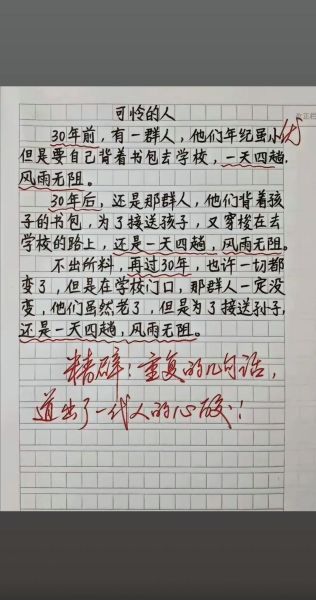 可怜的人
改正栏
30年前，有一群人，他们年纪虽小，
优
但是要自己背着书包去学校，一天四趟，
风雨无阻。
30年后，还是那群人，他们背着孩
子的书包，为了接送孩子，又穿梭在去
学校的路上，还是一天四趟，风雨无阻。
不出所料，再过30年，也许一切都
变了，但是在学校门口，那群人一定没
变，他们虽然老了，但是为了接送孙子，
还是一天四趟，风雨无阻。
精辟！重复的几句话，
道出了一代人的心酸！